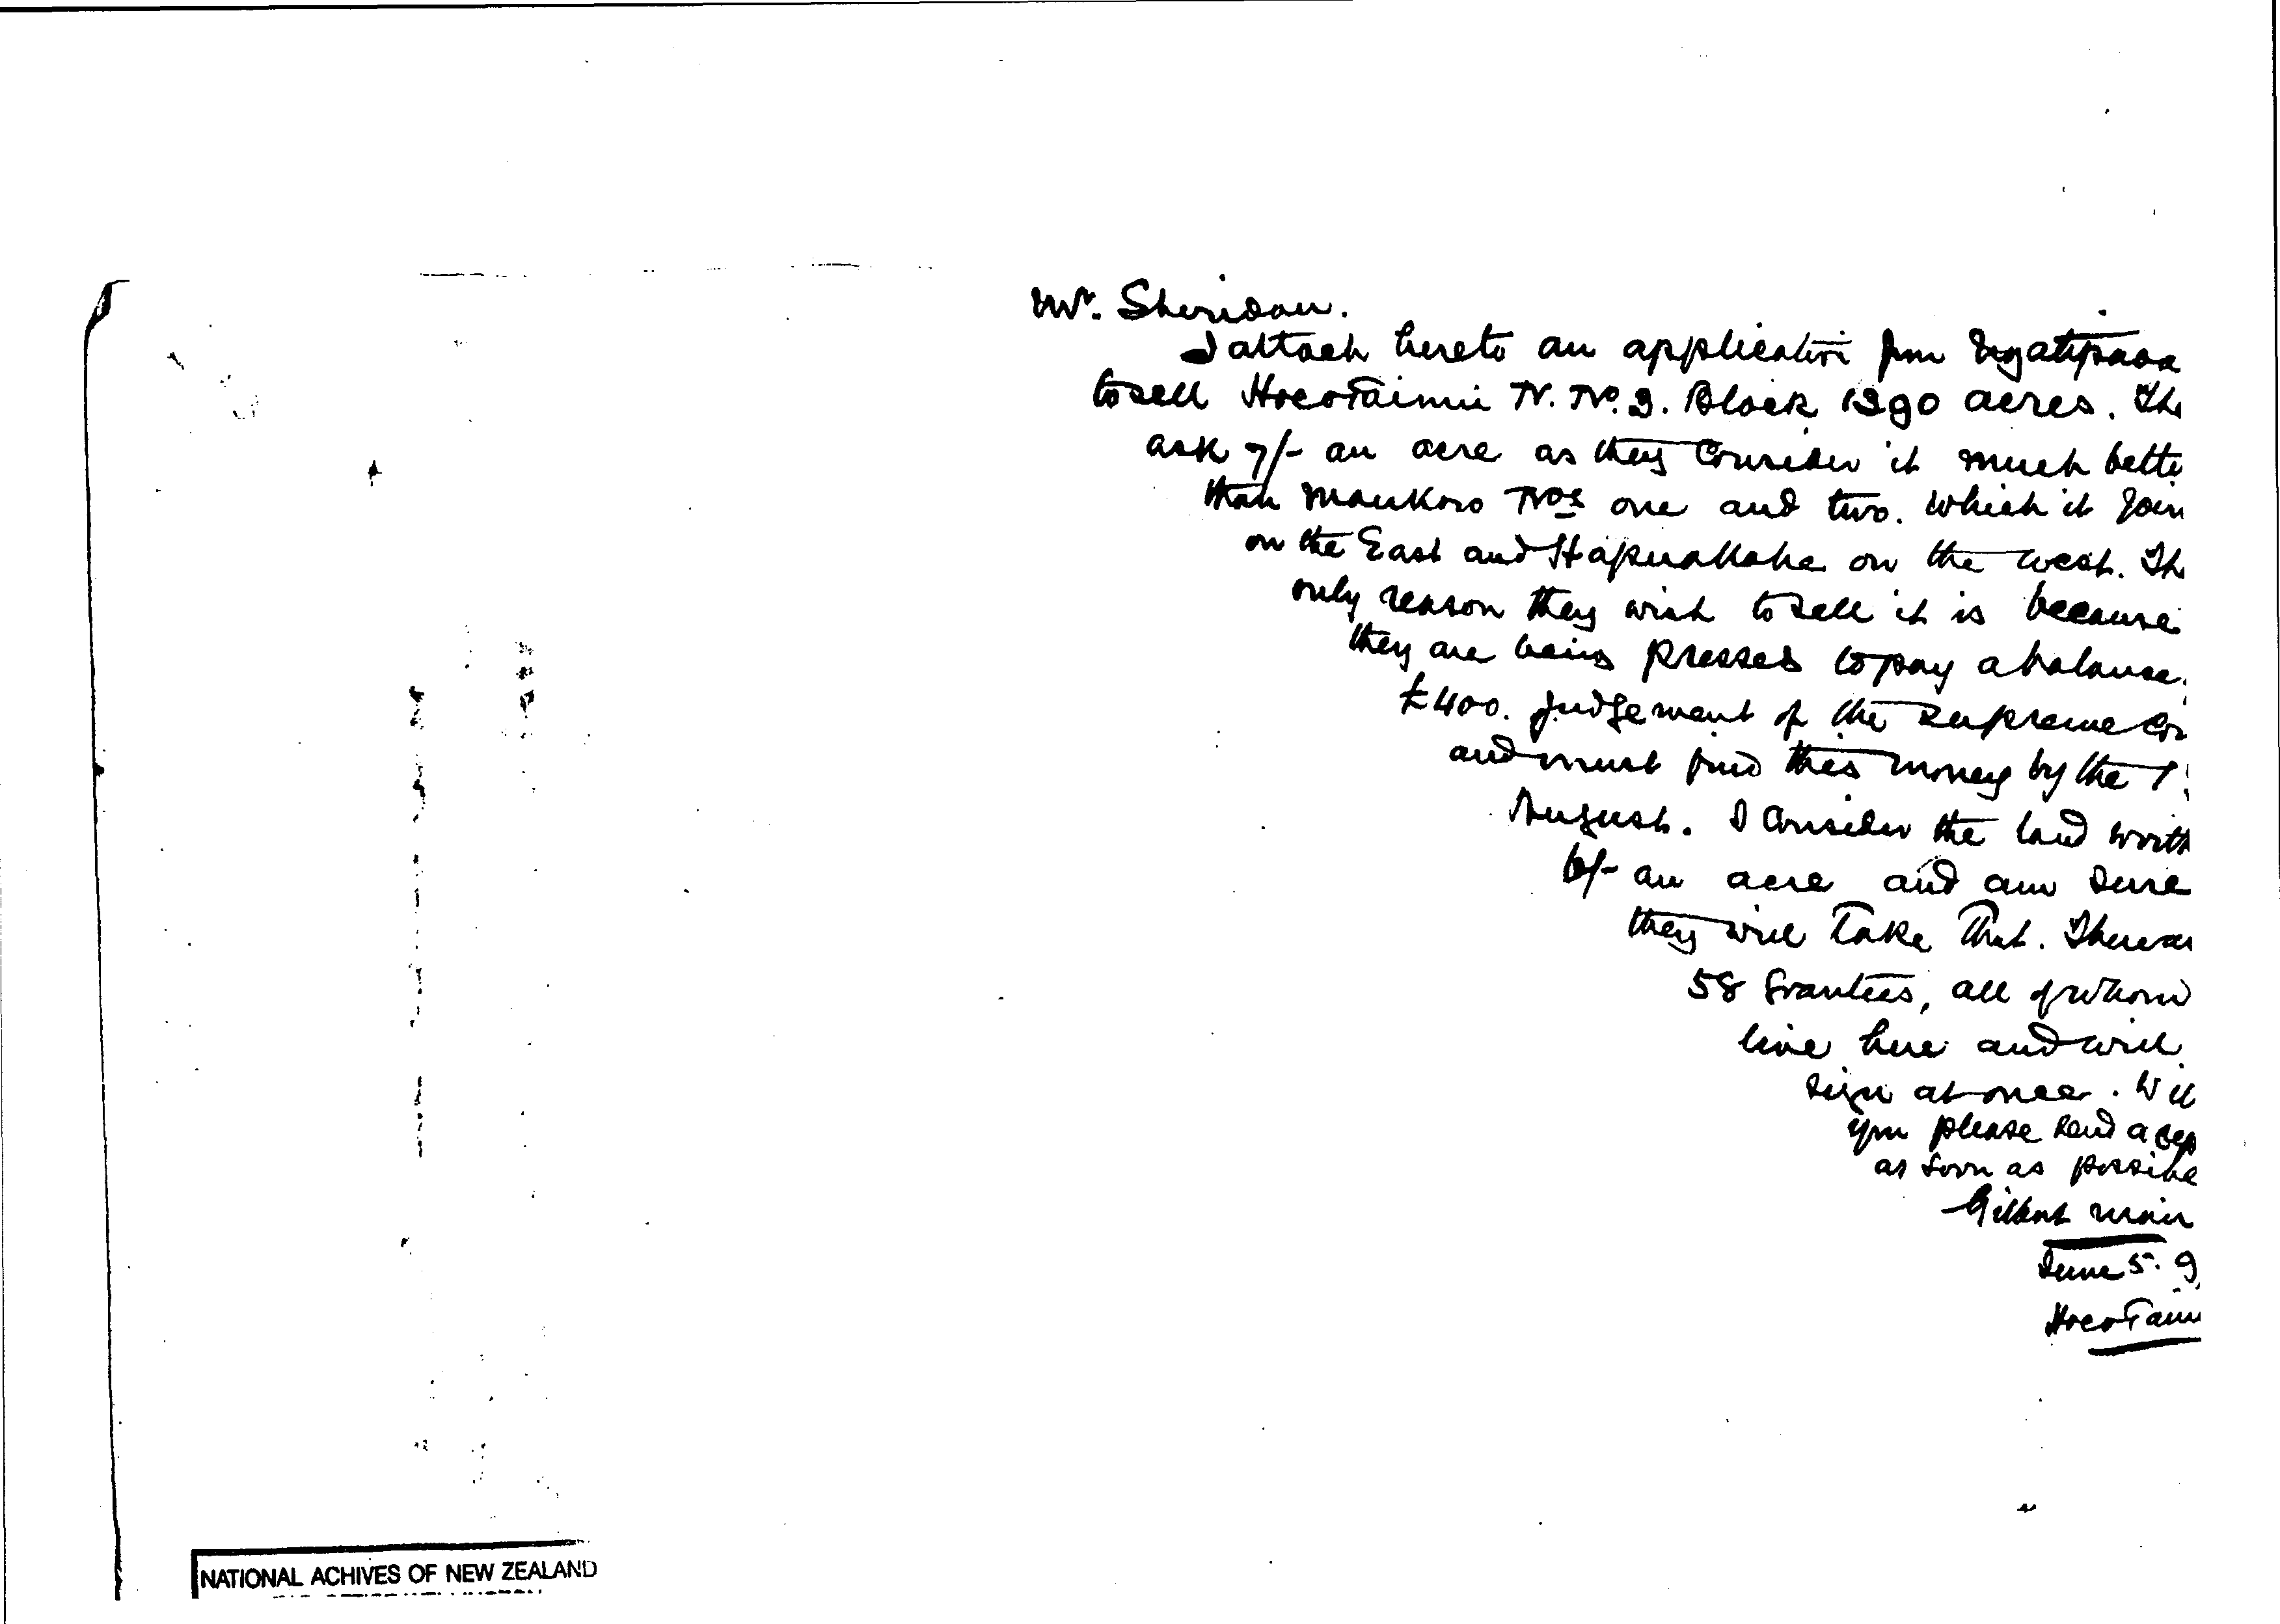 Mr. Sheridan.
I attach hereto an application from Ngatipaoa
to sell Hoeotainui N. No. 3. Block 1390 acres. Th
ask 7/- an acre as they consider it much bette
than Maukoro Nos one and two. which it join
on the East and Hapuakohe on the west. Th
only reason they wish to sell it is because
they are being pressed to pay a balance
£400. judgement of the Supreme Co
and must find this money by the 1
August. I consider the land worth
6/- an acre and am sure
they will take that. There ar
58 Grantees, all of whom
live here and will
sign at once. Will
you please send a
as soon as possible
Gilbert Mair
June 5. 9
Hoeotain
NATIONAL ACHIVES OF NEW ZEALAND